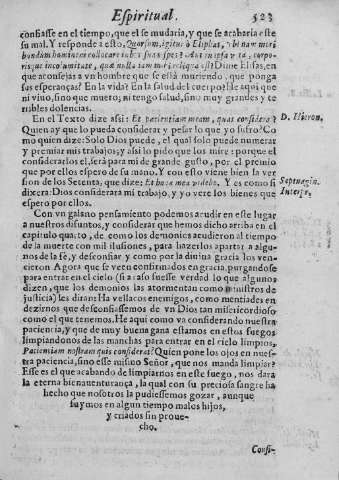 Espiritual. 523
confiasse en el tiempo, que el se mudaria, y que se acabaria este
su mal. Y responde a esto, Quorsum, igitur ò Eliphat, vbi nam mori
bondum hominem collocare iubes suas spes? Aut in ipsa vita, corpo-
risque incolumitate, quæ nulla iam mori reliqua est? Dime Elifas, en
que aconsejas a vn hombre que se està muriendo, que ponga
sus esperanças? En la vida? En la salud del cuerpo? He aqui que
ni viuo, sino que muero; ni tengo salud, sino muy grandes y te
rribles dolencias.
En el Texto dize assi: Et patientiam meam, quis considerat? D. Hieron.
Quien ay que lo pueda considerar y pesar lo que yo sufro? Co
mo quien dize: Solo Dios puede, el qual solo puede numerar
y premiar mis trabajos; y assi lo pido que los mire: porque el
considerarlos el, serà para mi de grande gusto, por el premio
que por ellos espero de su mano. Y con esto viene bien la ver
sion de los Setenta, que dize: Et bona mea videbo. Y es como si Septuagin.
dixera: Dios considerarà mi trabajo, y yo verè los bienes que Interpr.
espero por ellos.
Con vn galano pensamiento podemos acudir en este lugar
a nuestros difuntos, y considerar que hemos dicho arriba en el
capitulo quarto, de como los demonios acudieron al tiempo
de la muerte con mil ilusiones, para hazerlos apartar a algu-
nos de la fè, y desconfiar y como por la diuina gracia los ven-
cieron Agora que se veen confirmados en gracia, purgandose
para entrar en el cielo (si a caso fuesse verdad lo que algunos
dizen, que los demonios las atormentan como ministros de
justicia) les diran: Ha vellacos enemigos, como mentiades en
dezirnos que desconfiassemos de vn Dios tan misericordioso
como el que tenemos. He aqui como va considerando nuestra
paciencia, y que de muy buena gana estamos en estos fuegos
limpiandonos de las manchas para entrar en el cielo limpios.
Patientiam nostram quis considerat? Quien pone los ojos en nues-
tra paciencia, sino esse mismo Señor, que nos manda limpiar?
Esse es el que acabando de limpiarnos en este fuego, nos dara
la eterna bienauenturança, la qual con su preciosa sangre ha
hecho que nosotros la pudiessemos gozar, aunque
fuymos en algun tiempo malos hijos,
y criados sin proue-
cho.
Consi-